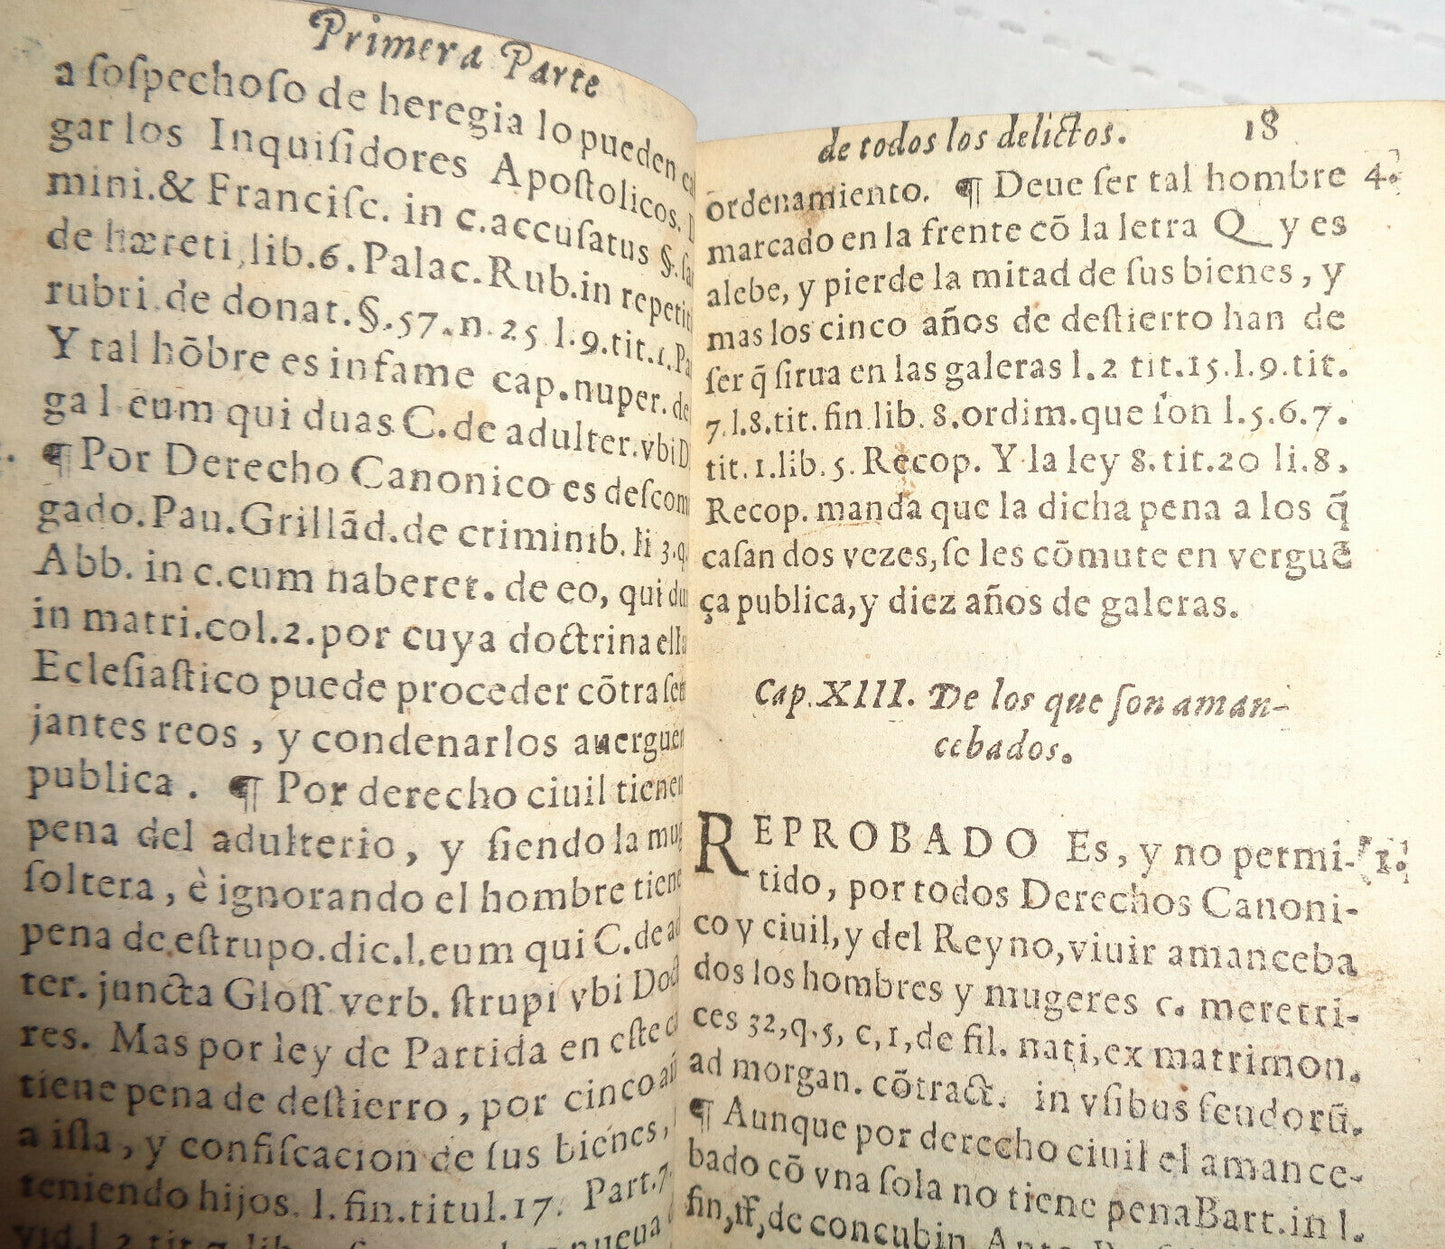 Primera Parte
a ſoſpechoſo de heregia lo pueden
gar los Inquiſidores Apoſtolicos.
mini.& Franciſc. in c.accuſatus §.
de hæreti, lib.6. Palac. Rub.in repetit
rubri.de donat.§.57.n.25 l.9.tit.1.
Y tal hōbre es infame cap.nuper. de
ga l.eum qui duas C.de adulter.vbi D
¶ Por Derecho Canonico es deſcom
gado.Pau.Grillãd.de criminib.li 3.q.
Abb. in c.cum haberet. de eo, qui du
in matri.col.2.por cuya doctrina el
Ecleſiaſtico puede proceder cōtra ſem
jantes reos , y condenarlos auerguen
publica . ¶ Por derecho ciuil tienen
pena del adulterio, y ſiendo la mug
ſoltera , è ignorando el hombre tiene
pena de.eſtrupo.dic.l.eum qui C.de ad
ter. juncta Gloſſ verb. ſtrupi vbi Doct
res. Mas por ley de Partida en eſte
tiene pena de deſtierro , por cinco añ
a iſla , y confiſcacion de ſus bienes,
teniendo hijos. l. fin.titul.17. Part.7.
de todos los delictos. 18
ordenamiento. ¶ Deue ſer tal hombre 4.
marcado en la frente cō la letra Q y es
alebe, y pierde la mitad de ſus bienes , y
mas los cinco años de deſtierro han de
ſer q̃ ſirua en las galeras l.2 tit.15.l.9.tit.
7.l.8.tit. fin lib. 8.ordim.que ſon l.5.6.7.
tit.1.lib.5. Recop. Y la ley 8.tit.20 li.8.
Recop. manda que la dicha pena a los q̃
caſan dos vezes,ſe les cōmute en verguẽ
ça publica,y diez años de galeras.
Cap.XIII. De los que ſon aman-
cebados.
REPROBADO Es, y no permi- 1.
tido, por todos Derechos Canoni-
co y ciuil,y del Reyno,viuir amanceba
dos los hombres y mugeres c. meretri-
ces 32,q.5, c,1,de fil. nati,ex matrimon.
ad morgan. cōtract. in vſibus feudorũ.
¶ Aunque por derecho ciuil el amance-
bado cō vna ſola no tiene pena Bart.in l.
fin,ff,de concubin.